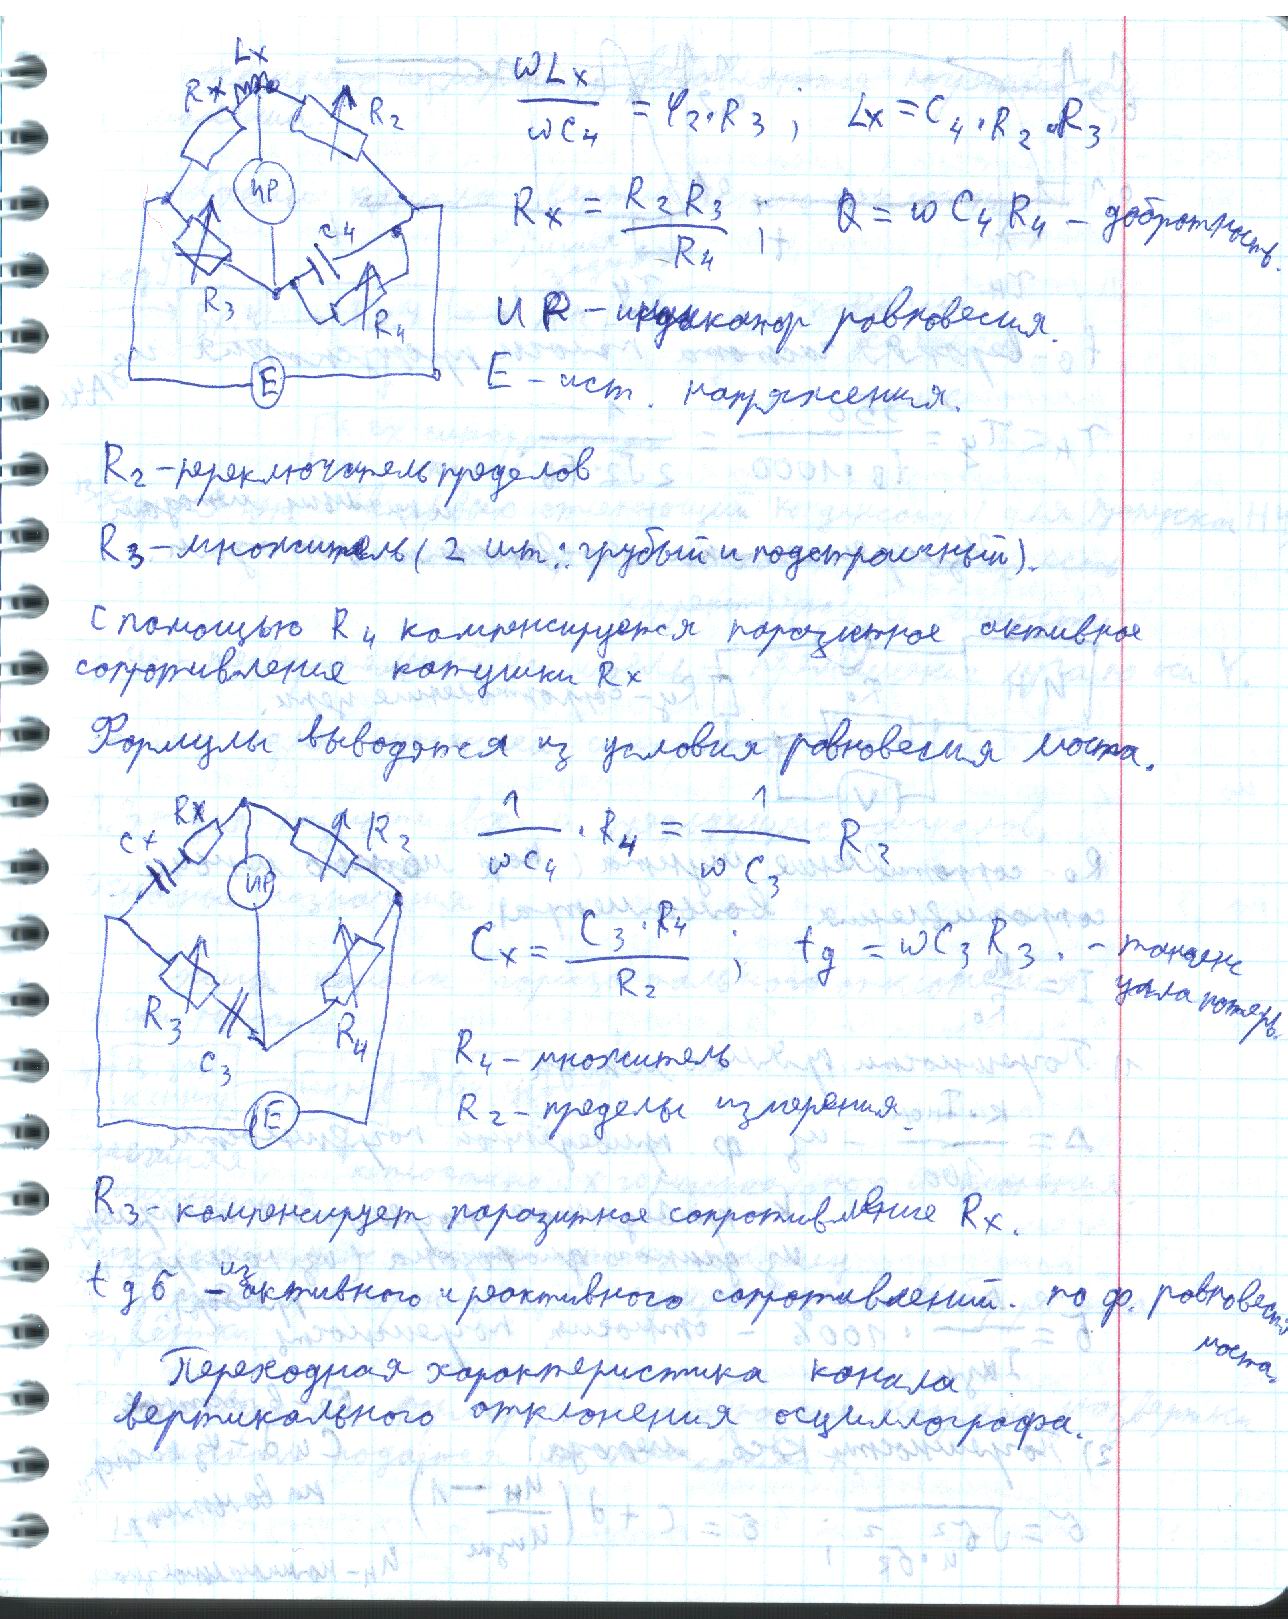 Lx
Rx
R2
ИР
C4
R3
R4
E
ωLx / ωC4 = R2·R3 ; Lx = C4·R2·R3
Rx = R2 R3 / R4 ; Q = ω C4 R4 – добротность.
ИР – индикатор равновесия.
E – ист. напряжения.
R2 – переключатель пределов
R3 – множитель (2 шт.: грубый и подстроичный).
С помощью R4 компенсируется паразитное активное
сопротивления катушки Rx
Формулы выводятся из условия равновесия моста.
Cx
Rx
R2
ИР
R3
C3
R4
E
1 / ωC4 · R4 = 1 / ωC3 R2
Cx = C3·R4 / R2 ; tg = ωC3 R3 . – тангенс
угла потерь.
R4 – множитель
R2 – пределы измерения
R3 – компенсирует паразитное сопротивление Rx.
tg б – из активного и реактивного сопротивлений. по ф. равновесия
моста.
Переходная характеристика канала
вертикального отклонения осциллографа.